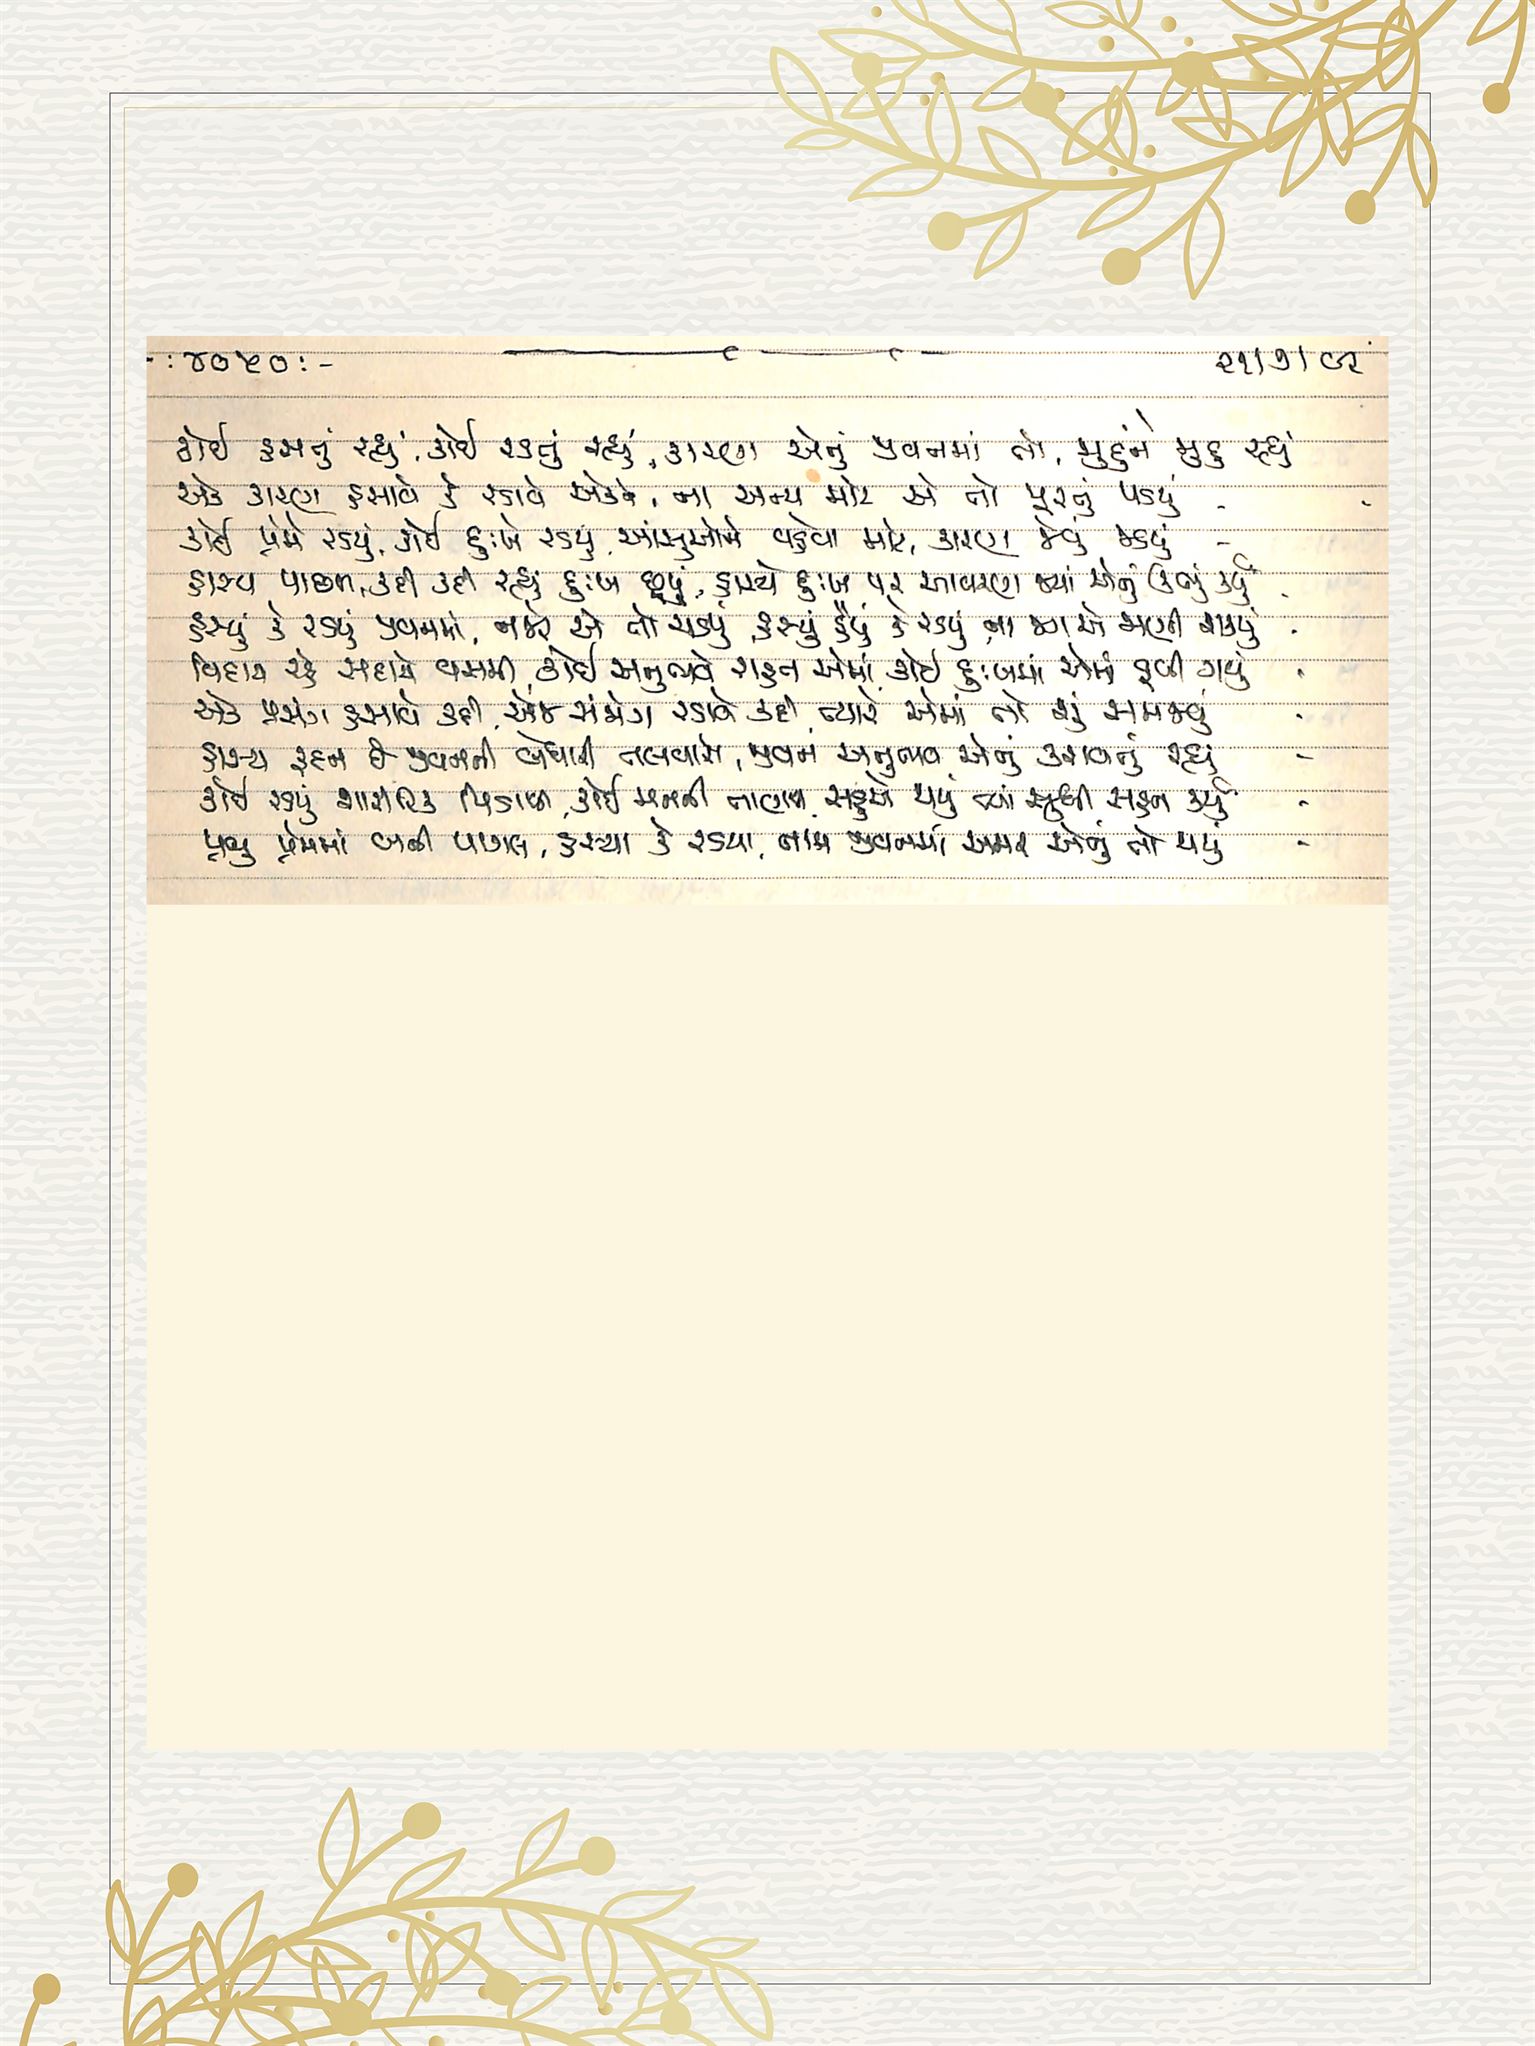 -: ૪૦૫૦ :- ૨૧/૭/૯૨
કોઈ હસતું રહ્યું, કોઈ રડતું રહ્યું, કારણ એનું જીવનમાં તો, જુદુંને જુદુ રહ્યું
એક કારણ હસાવે કે રડાવે એકને, ના અન્ય માટે એ તો પૂરતું પડયું -
કોઈ પ્રેમે રડયું, કોઈ દુઃખે રડયું, આંસુઓને વહેવા માટે, કારણ જેવું જડયું -
હાસ્ય પાછળ, કદી કદી રહ્યું દુઃખ છૂપું, હાસ્યે દુઃખ પર આવરણ જ્યાં એનું ઉભું કર્યું -
હસ્યું કે રડયું જીવનમાં, નજરે એ તો ચડયું, હસ્યું હૈયું કે રડયું, ના જાણે જાણી શકયું -
વિદાય રહે સદાયે વસમી, કોઈ અનુભવે રાહત એમાં, કોઈ દુઃખમાં એમાં ડૂબી ગયું -
એક પ્રસંગ હસાવે કદી, એજ સંજોગ રડાવે કદી, ત્યારે એમાં તો શું સમજવું -
હાસ્ય રૂદન છે જીવનની બેધારી તલવાર, જીવન અનુભવ એનું કરાવતું રહ્યું -
કોઈ રડયું શારીરિક પિડાએ, કોઈ મનની તાણે, સહુએ થયું ત્યાં સુધી સહન કર્યું -
પ્રભુ પ્રેમમાં બની પાગલ, હસ્યા કે રડયા, નામ જીવનમાં અમર એનું તો થયું -